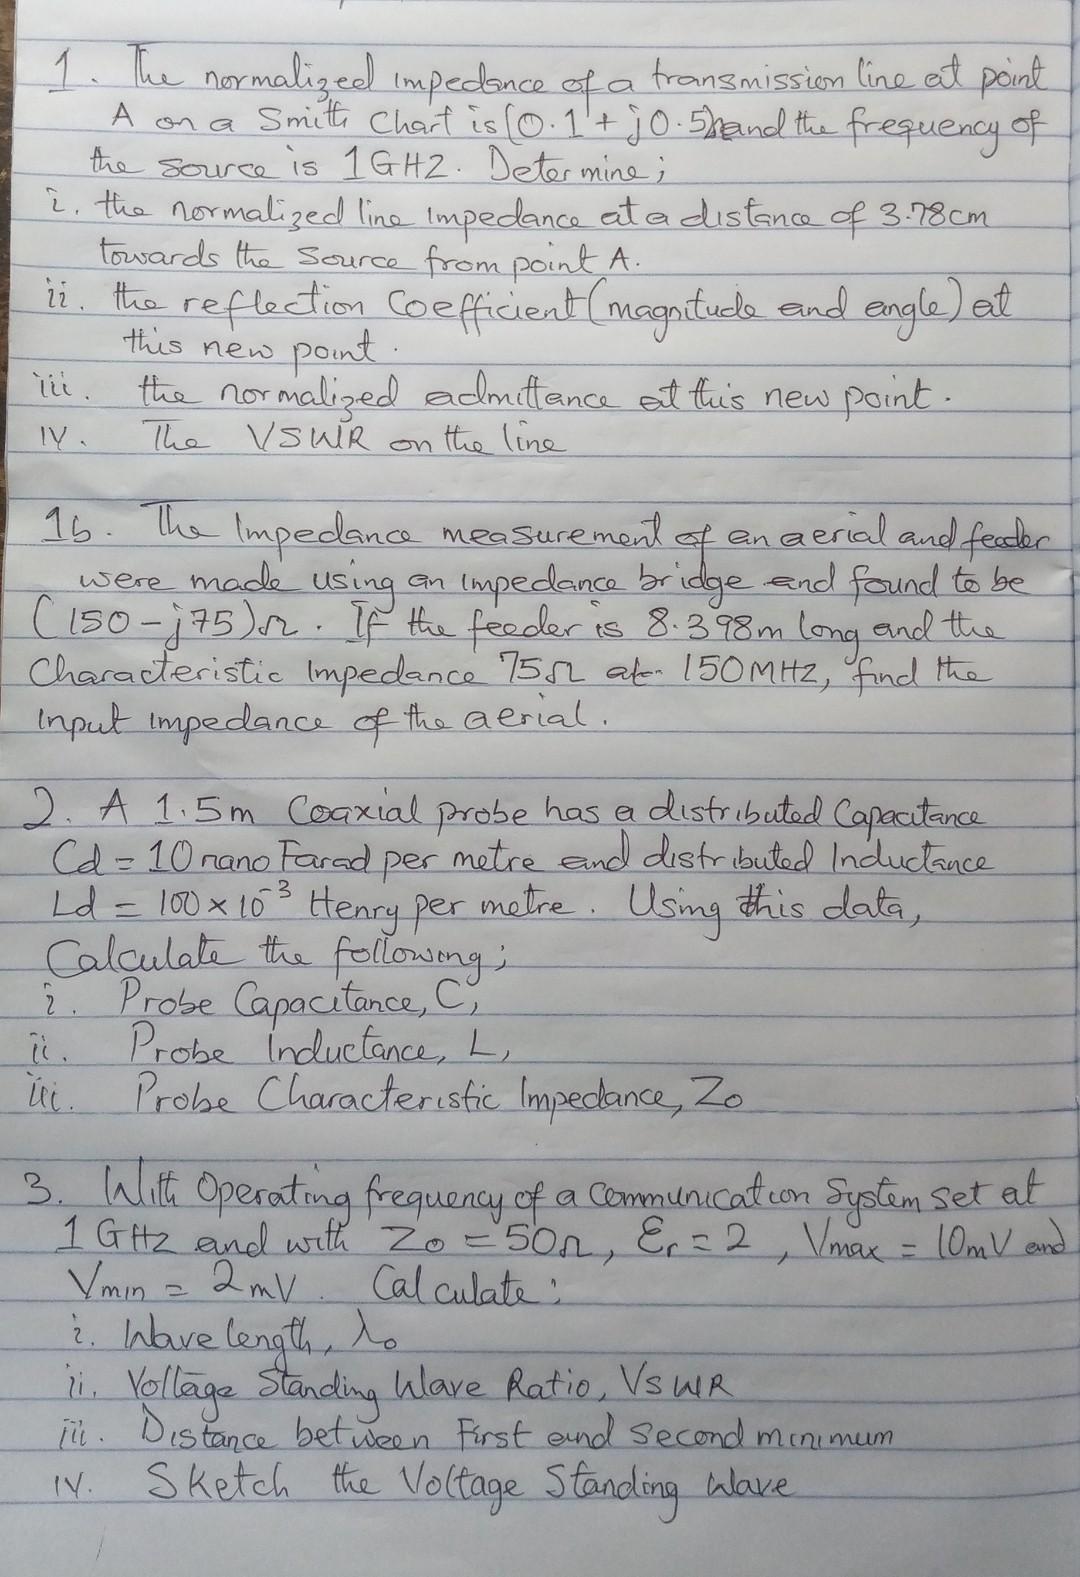 1. The normalized impedance of a transmission line at point
A on a Smith Chart is (0.1 + j0.5) and the frequency of
the source is 1GHZ. Determine;
i. the normalized line impedance at a distance of 3.78cm
towards the source from point A.
ii. the reflection Coefficient (magnitude and angle) at
this new point.
iii. the normalized admittance at this new point.
IV. The VSWR on the line
1b. The Impedance measurement of an aerial and feeder
were made using an impedance bridge and found to be
(150 - j75)Ω. If the feeder is 8.398m long and the
Characteristic Impedance 75Ω at 150MHZ, find the
input impedance of the aerial.
2. A 1.5m Coaxial probe has a distributed Capacitance
Cd = 10 nano Farad per metre and distributed Inductance
Ld = 100 x 10⁻³ Henry per metre. Using this data,
Calculate the following;
i. Probe Capacitance, C,
ii. Probe Inductance, L,
iii. Probe Characteristic Impedance, Zo
3. With Operating frequency of a Communication System set at
1 GHz and with Zo = 50Ω, Ɛr = 2, Vmax = 10mV and
Vmin = 2mV. Calculate:
i. Wavelength, λo
ii. Voltage Standing Wave Ratio, VSWR
iii. Distance between First and Second minimum
IV. Sketch the Voltage Standing Wave